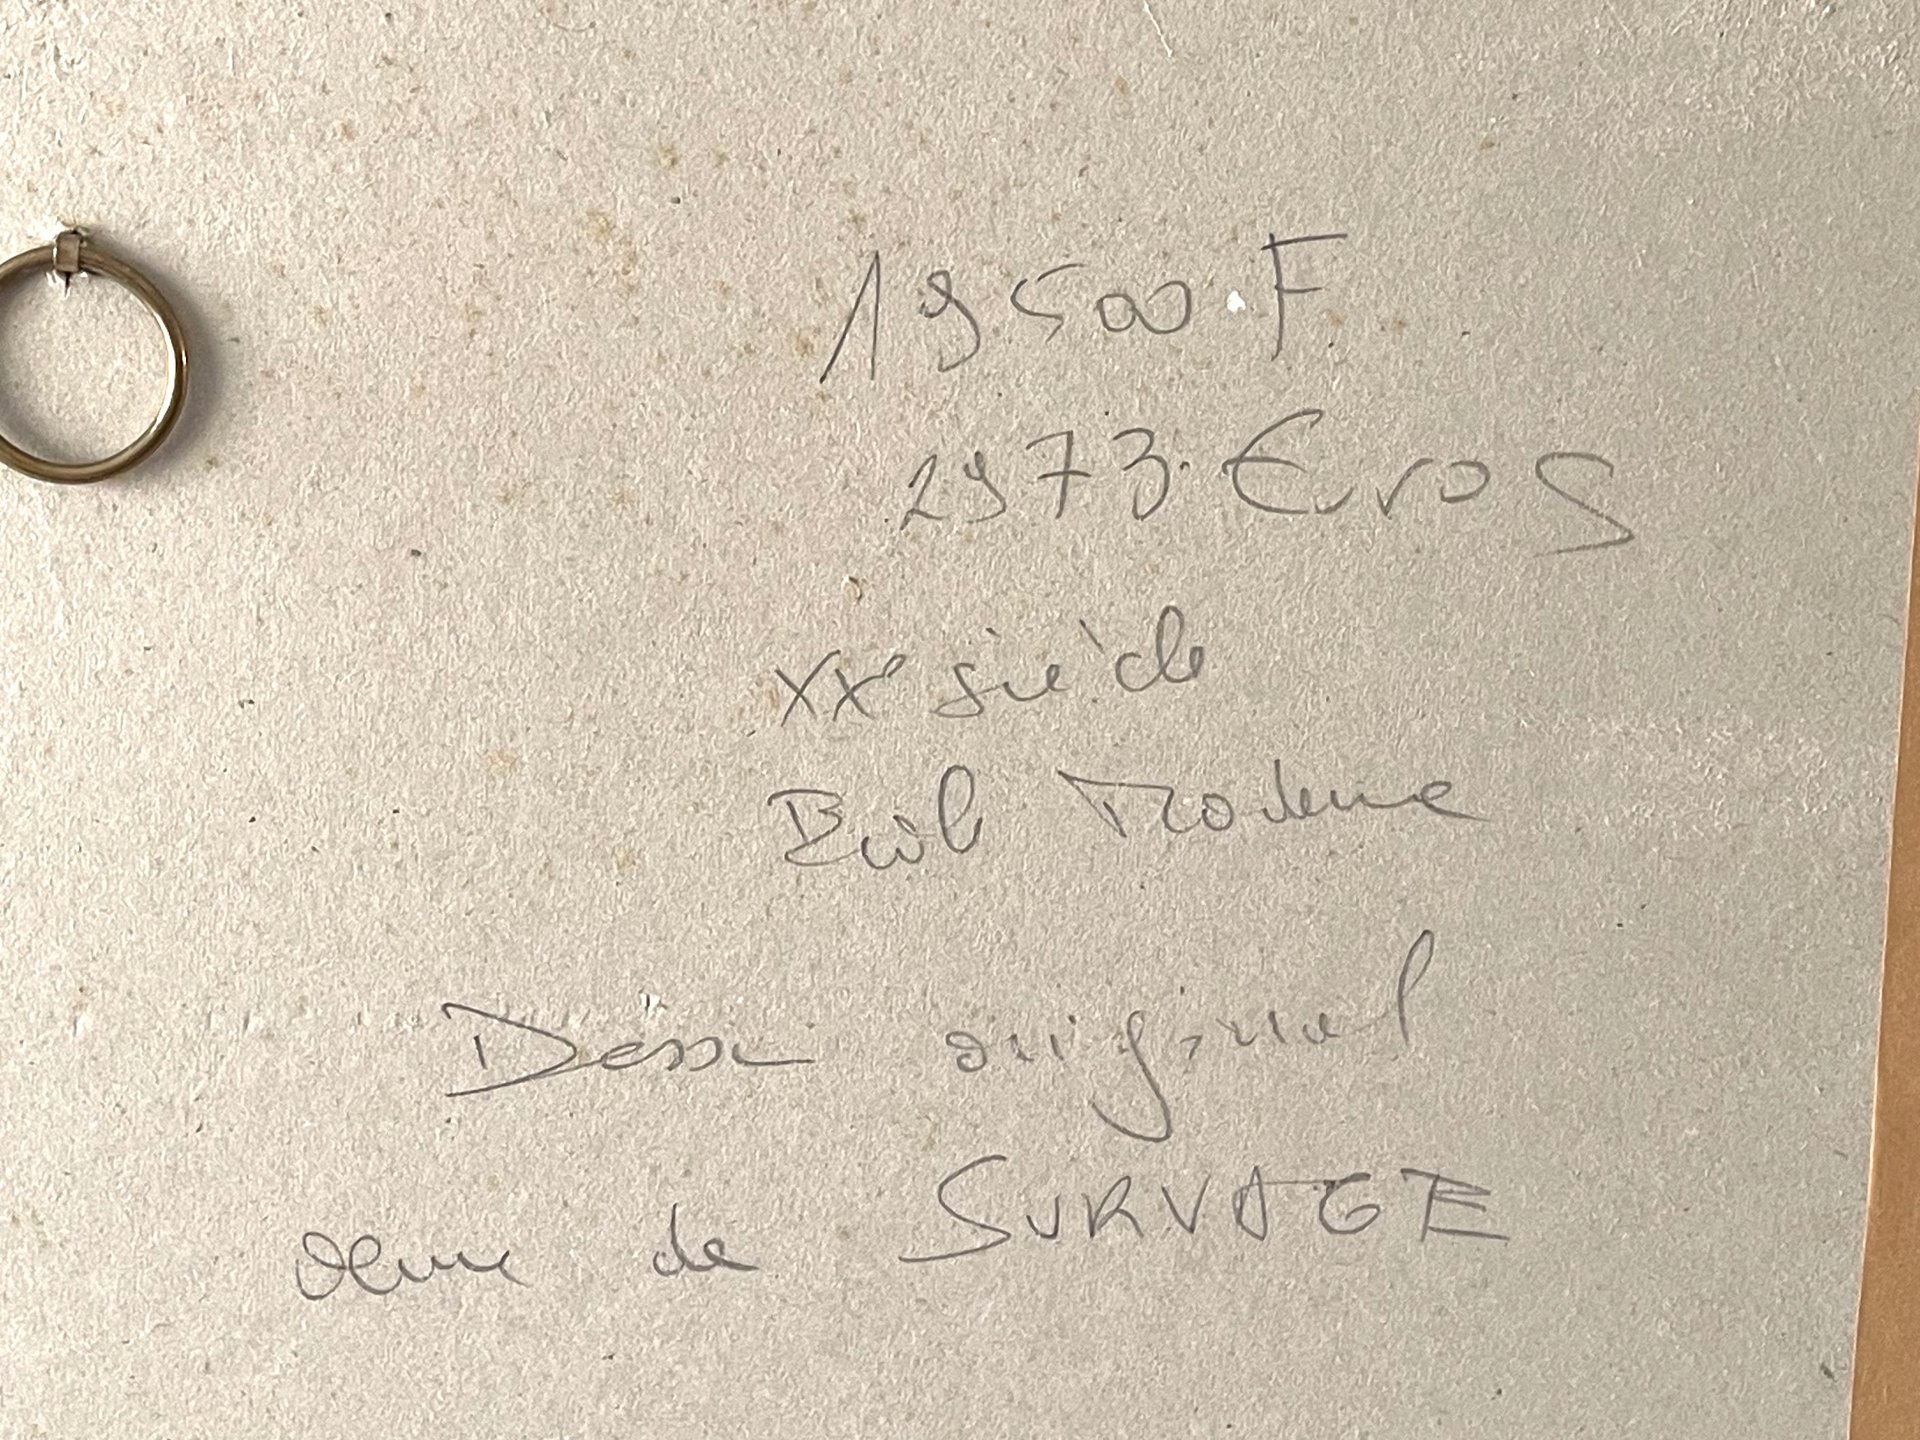 19500.F
2973.Euros
XXe siècle
Ecole Moderne
Dessin original
œuvre de SURVAGE